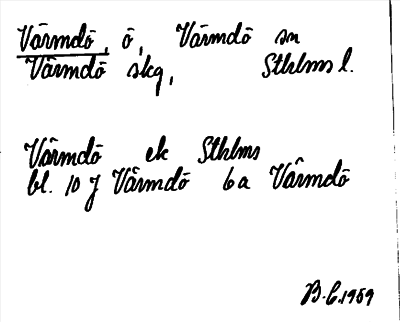 Värmdö, ö, Värmdö sn
Värmdö skg, Sthlms l.
Värmdö ek Sthlms
bl. 10 J Värmdö 6a Värmdö
B.C.1959